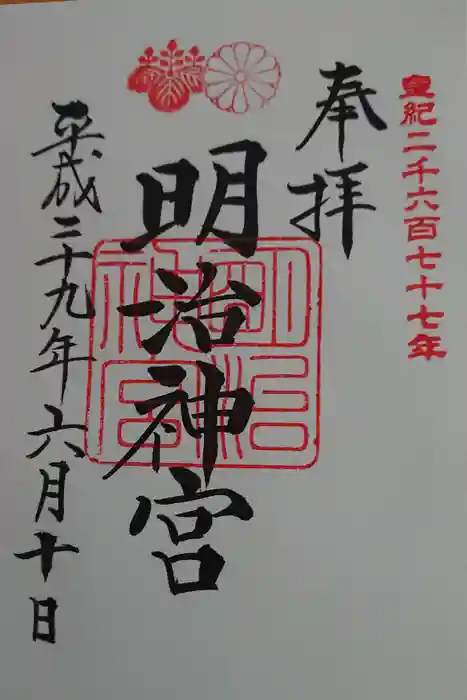 皇紀二千六百七十七年
奉拝
明治神宮
明治
神宮
平成二十九年六月十日